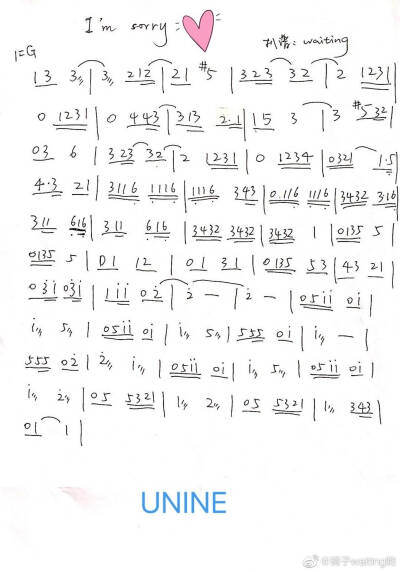 I'm sorry
扒谱: waiting
1=G
1 3 3 | 3 212 | 21 #5 | 323 32 | 2 1231 |
0 1231 | 0 443 | 313 2.1 | 15 3 | 3 #532 |
03 6 | 323 32 | 2 1231 | 0 1234 | 0321 1.5 |
4.3 21 | 3116 1116 | 1116 343 | 0.116 1116 | 3432 316 |
311 616 | 311 616 | 3432 3432 | 3432 1 | 0135 5 |
0135 5 | 01 12 | 01 31 | 0135 53 | 43 21 |
03i 03i | iii 02 | 2 — | 2 — | 05ii 0i |
i 5 | 05ii 0i | i 5 | 555 0i | i — |
555 02 | 2 | 05ii 0i | i 5 | 05ii 0i |
i 2 | 05 5321 | 1 2 | 05 5321 | 1 343 |
01 1 |
UNINE